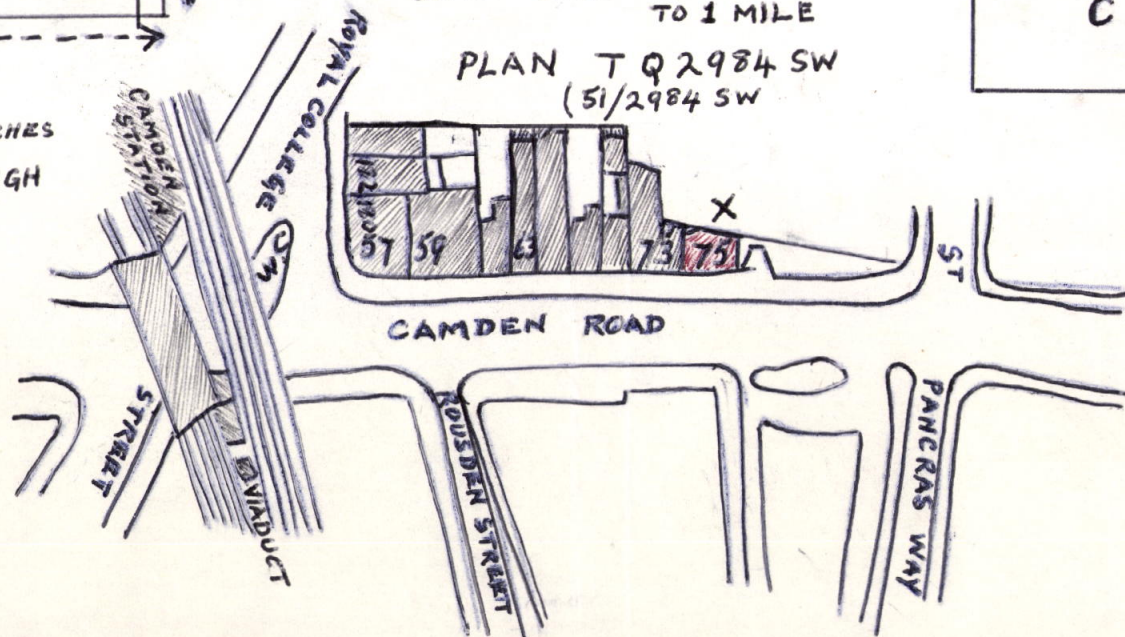 TO 1 MILE
C
PLAN TQ 2984 SW
(51/2984 SW
CHES
GH
CAMDEN
STATION
ROYAL COLLEGE
57
59
63
73
75
X
ST
CAMDEN ROAD
STREET
VIADUCT
ROUSDEN STREET
PANCRAS WAY